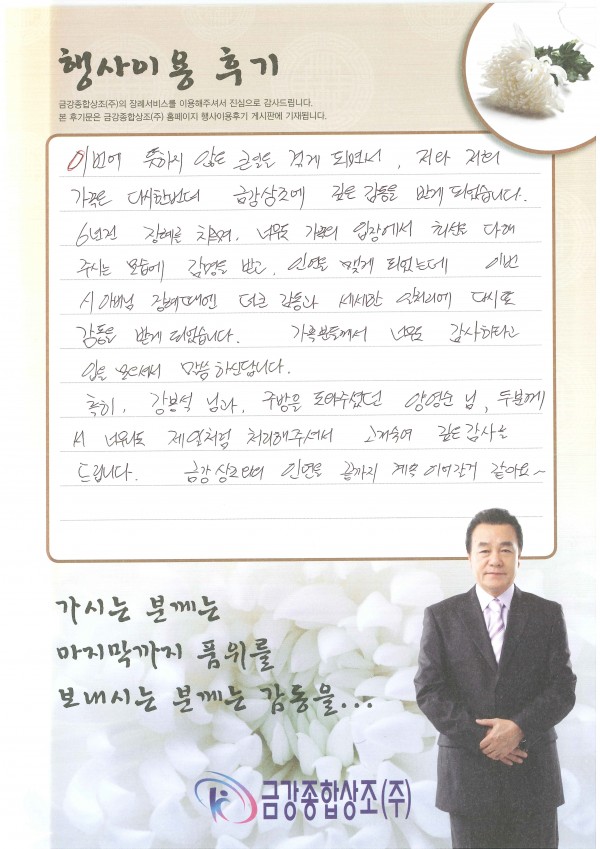 행사이용 후기
금강종합상조(주)의 장례서비스를 이용해주셔서 진심으로 감사드립니다.
본 후기문은 금강종합상조(주) 홈페이지 행사이용후기 게시판에 기재됩니다.
이번에 뜻하지 않은 큰일을 겪게 되면서, 저와 저희
가족은 다시한번더 금강상조에 깊은 감동을 받게 되었습니다.
6년전 장례를 치르며, 너무도 가족의 입장에서 최선을 다해
주시는 모습에 감명을 받고, 인연을 맺게 되었는데 이번
시아버님 장례때에는 더큰 감동과 세세한 일처리에 다시금
감동을 받게 되었습니다. 가족분들께서 너무도 감사하다고
입을 모아서 말씀 하신답니다.
특히, 강봉석 님과, 주방을 도와주셨던 양영순 님, 두분께
서 너무나도 제일처럼 처리해주셔서 고개숙여 깊은감사를
드립니다. 금강상조와의 인연을 끝까지 계속 이어갈거 같아요~
가시는 분께는
마지막까지 품위를
보내시는 분께는 감동을...
금강종합상조(주)